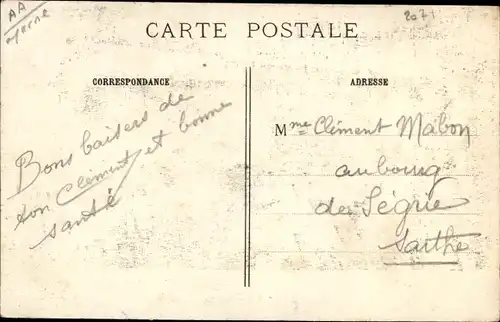 AA
Marne
2071
CARTE POSTALE
CORRESPONDANCE
ADRESSE
Bons baisers de
ton Clement et bonne
santé
Mme Clément Mabon
au bourg
de Ségrie
Sarthe